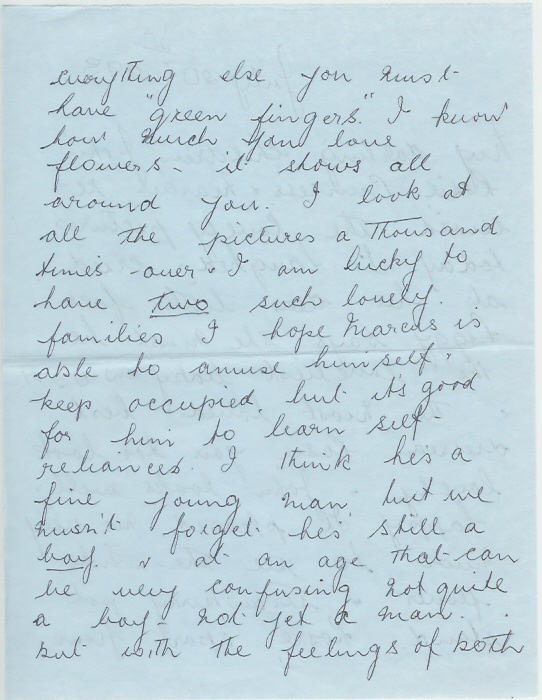 everything else you must
have "green fingers." I know
how much you love
flowers - it shows all
around you. I look at
all the pictures a thousand
times - over & I am lucky to
have two such lovely.
families I hope Marcus is
able to amuse himself &
keep occupied, but it's good
for him to learn self-
reliances. I think he's a
fine young man, but we
musn't forget he's still a
boy. & at an age that can
be very confusing not quite
a boy - not yet a man.
but with the feelings of both